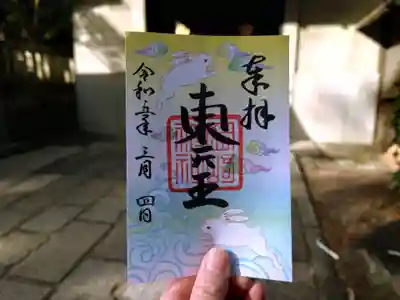 奉拝
東天王
令和五年 三月 四日